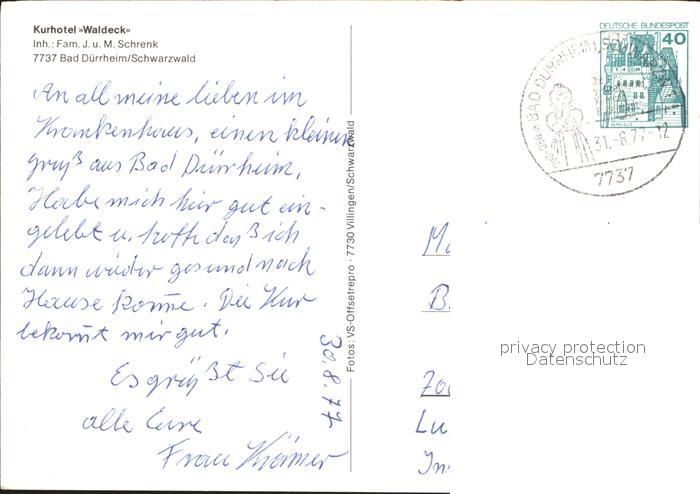 Kurhotel »Waldeck«
Inh.: Fam. J. u. M. Schrenk
7737 Bad Dürrheim/Schwarzwald
An all meine lieben im
Krankenhaus, einen kleinen
gruß aus Bad Dürrheim,
Habe mich hier gut ein-
gelebt u. hoffe daß ich
dann wieder gesund nach
Hause kom̅e. Die Kur
bekom̅t mir gut.
Es grüßt Sie
alle Eure
Frau Krämer
30.8.77
Fotos: VS-Offsetrepro · 7730 Villingen/Schwarzwald
DEUTSCHE BUNDESPOST
40
BAD DÜRRHEIM
31.-8.77-12
7737
B
Lu
privacy protection
Datenschutz